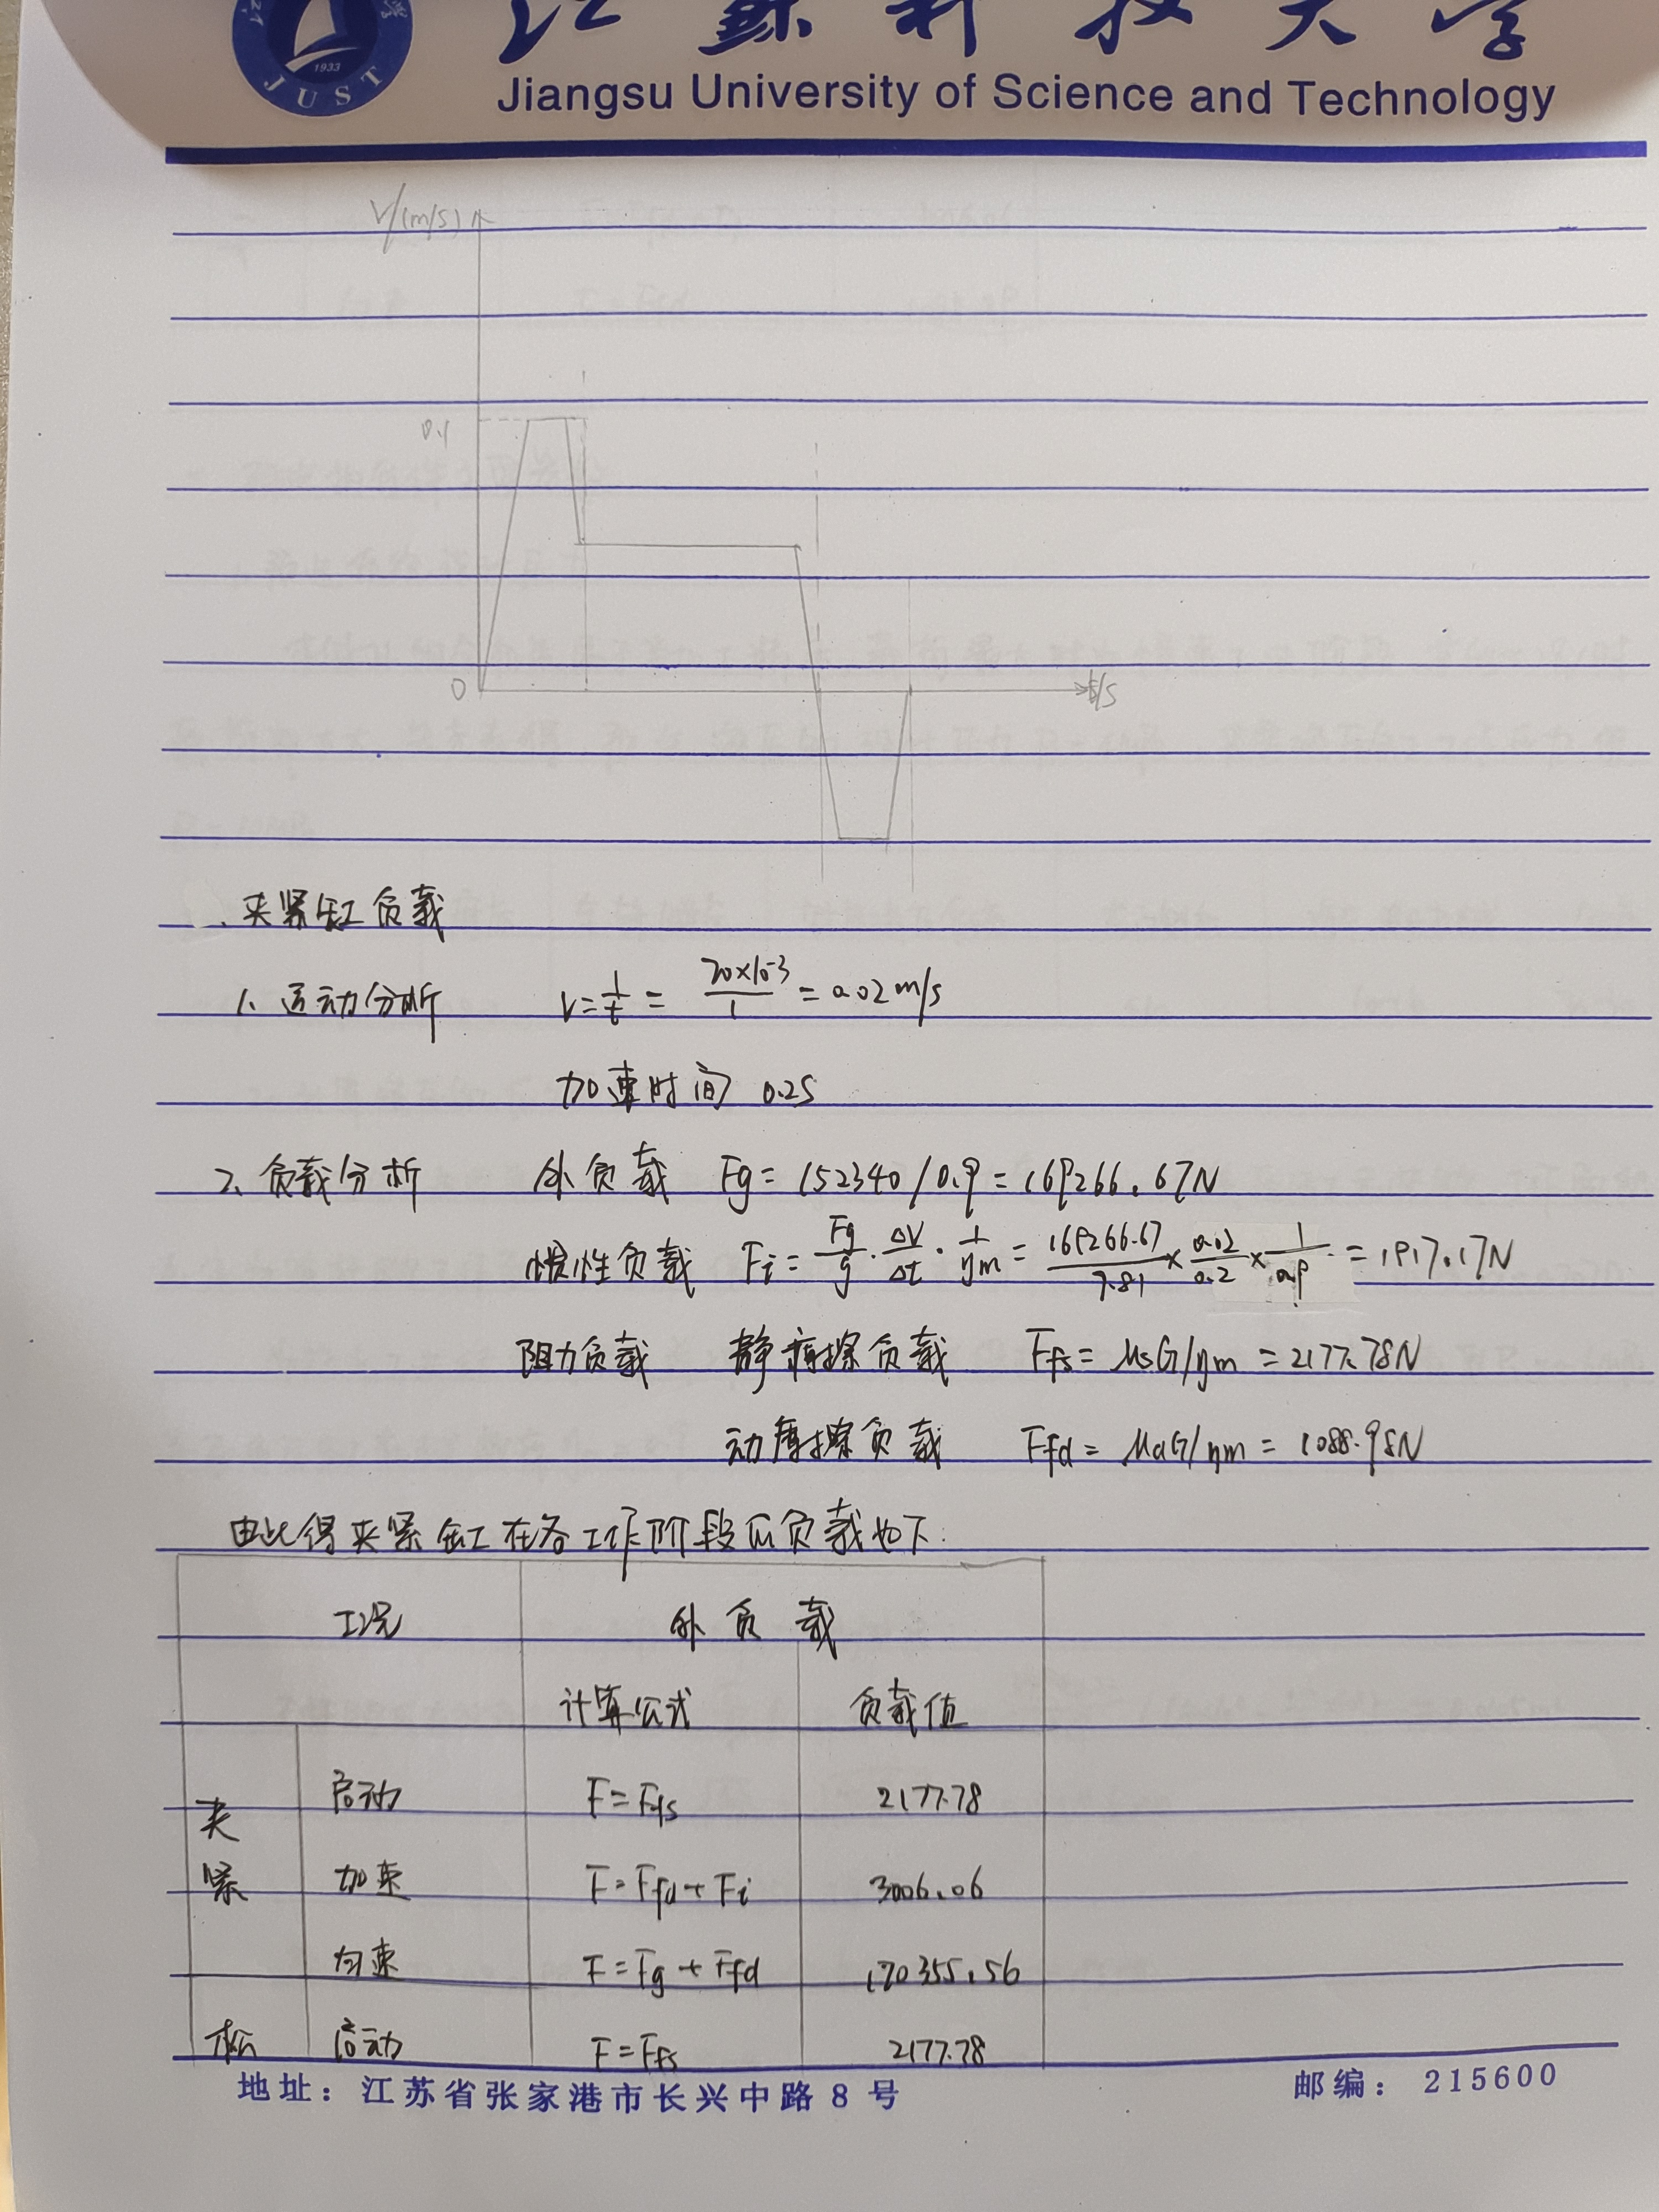 江苏科技大学
1933
JUST
Jiangsu University of Science and Technology
V/(m/s)
0.1
0
t/s
、夹紧缸负载
1、运动分析 V=l/t= 20×10-3/1 =0.02m/s
加速时间 0.2S
2、负载分析 外负载 Fg=152340/0.9=169266.67N
惯性负载 Fi=Fg/g·ΔV/Δt·1/ηm=169266.67/9.81×0.02/0.2×1/0.9=1917.17N
阻力负载 静摩擦负载 Ffs=μsG/ηm=2177.78N
动摩擦负载 Ffd=μdG/ηm=1088.98N
由此得夹紧缸在各工作阶段的负载如下:
工况 外负载
计算公式 负载值
夹紧 启动 F=Ffs 2177.78
加速 F=Ffd+Fi 3006.06
匀速 F=Fg+Ffd 170355.56
松 启动 F=Ffs 2177.78
地址：江苏省张家港市长兴中路8号 邮编：215600